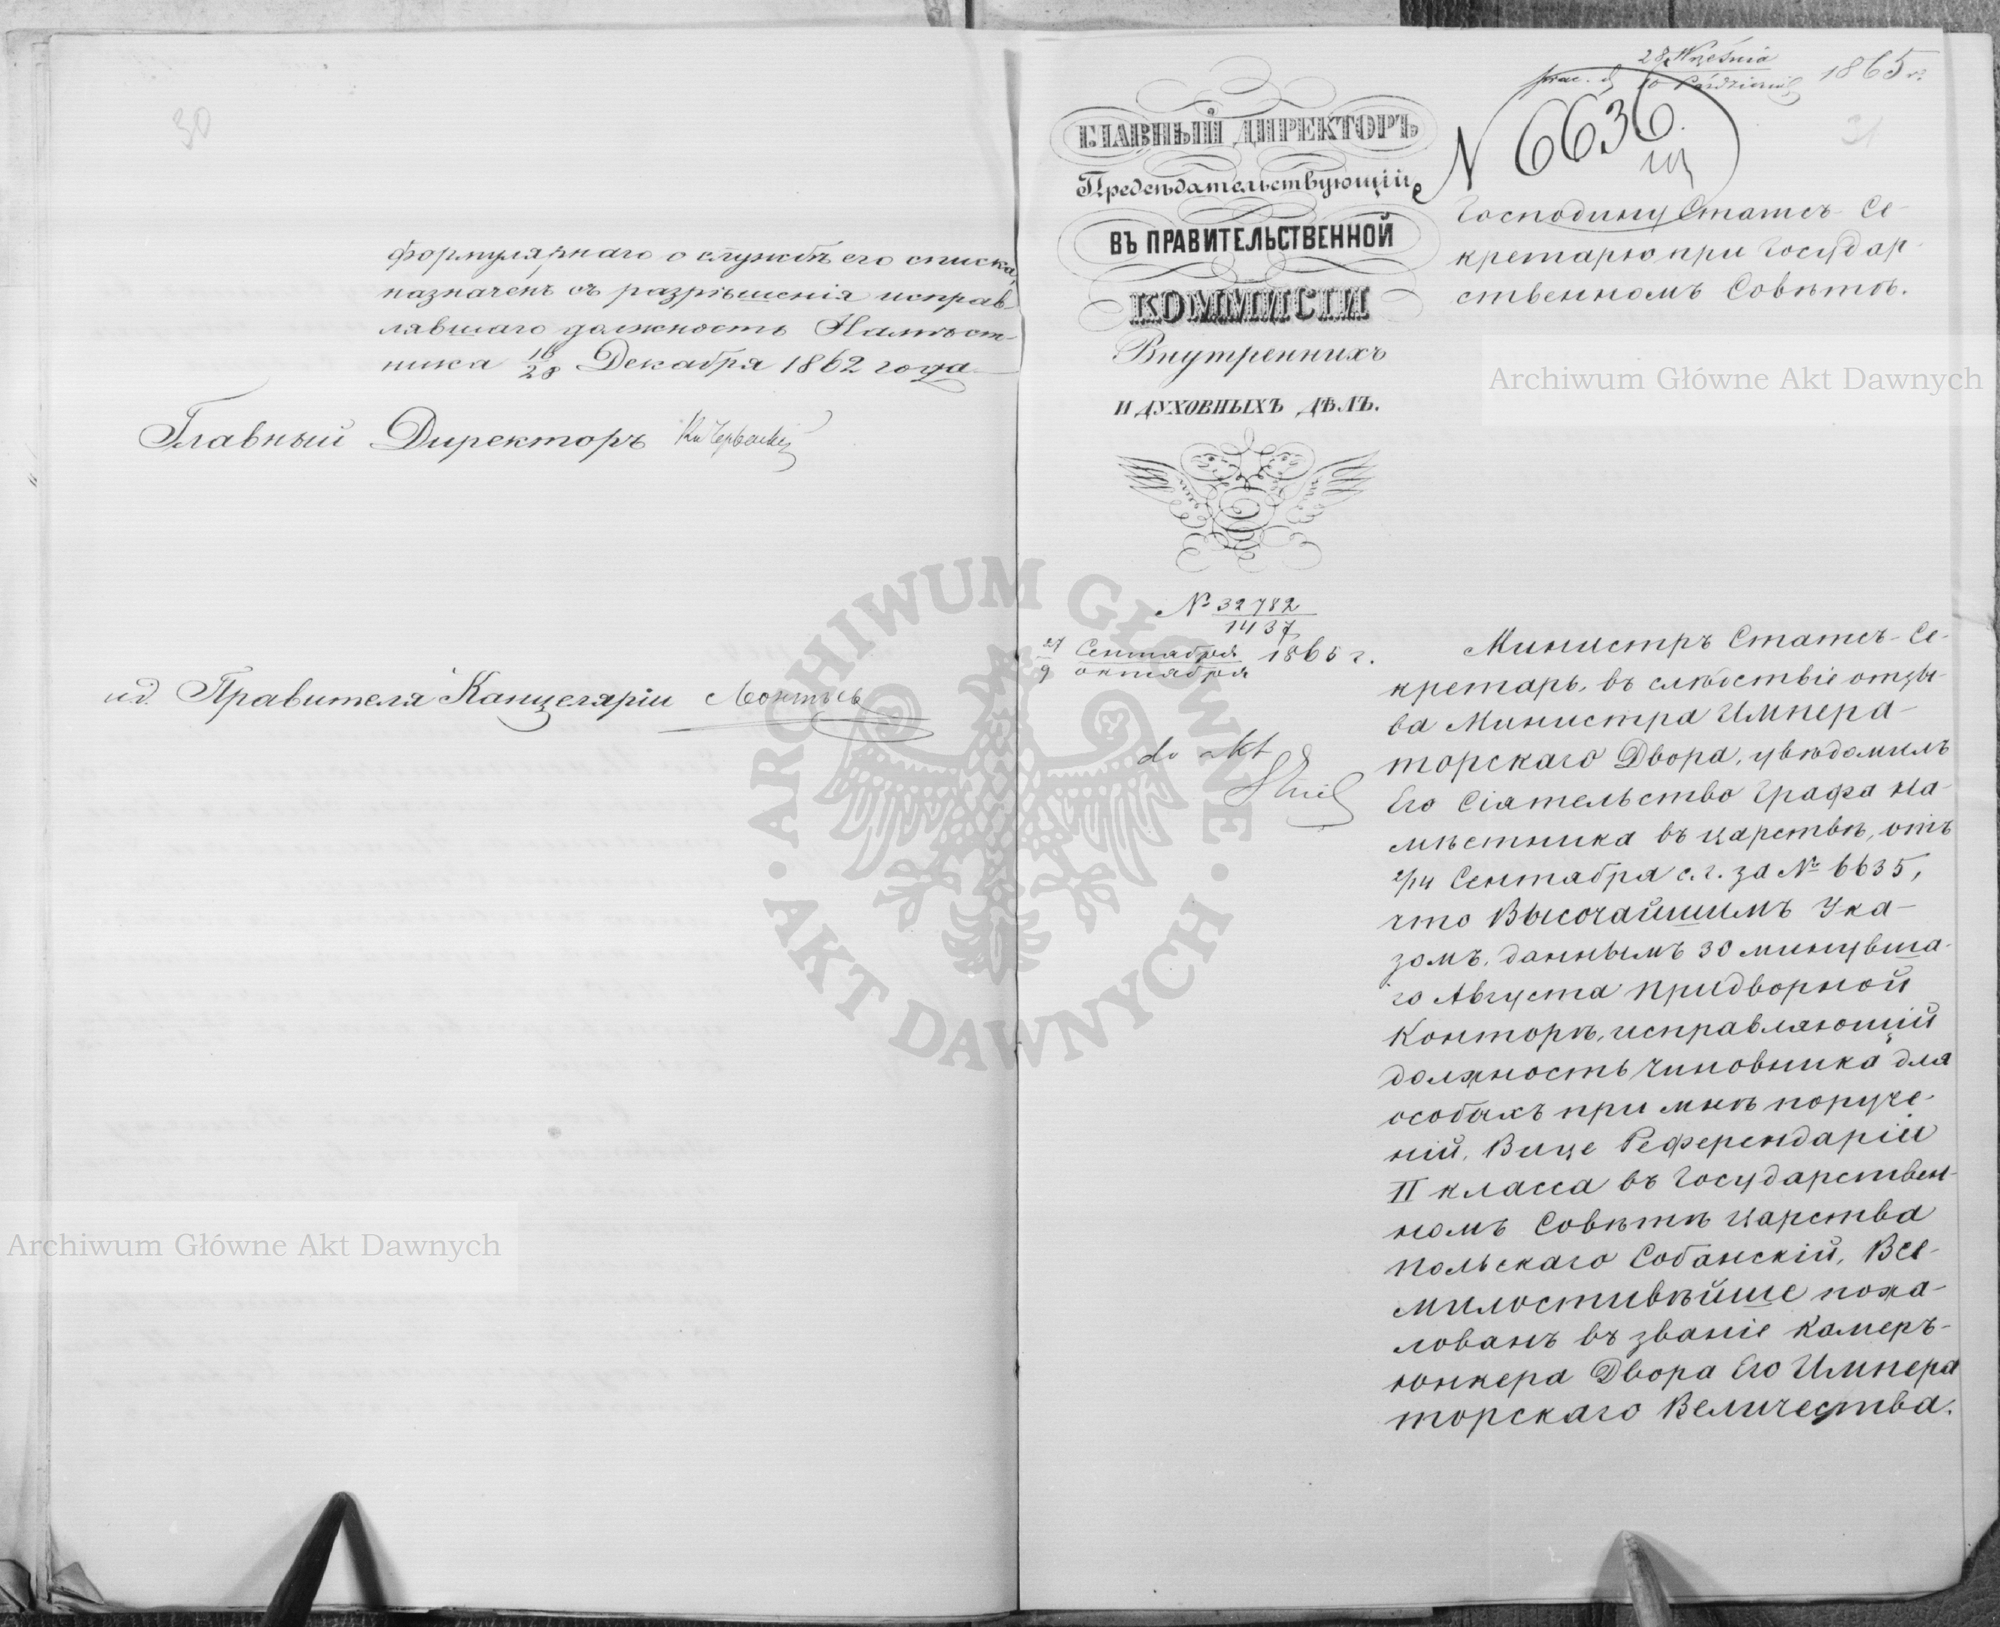 30
формулярнаго о службѣ его списка,
назначенъ съ разрѣшенія исправ-
лявшаго должность Намѣст-
ника 16/28 Декабря 1862 года
Главный Директоръ Кн Черкаскій
ид. Правителя Канцеляріи
28 Września
10 Października 1865 r.
31
N 6636
ГЛАВНЫЙ ДИРЕКТОРЪ
Предсѣдательствующій
ВЪ ПРАВИТЕЛЬСТВЕННОЙ
КОММИСІИ
Внутреннихъ
И ДУХОВНЫХЪ ДѢЛЪ.
№ 32782
1437
27 Сентября 1865 г.
9 октября
do akt
Господину Статсъ-Се-
кретарю при Государ-
ственномъ Совѣтѣ.
Министръ Статсъ-Се-
кретарь, въ слѣдствіе отзы-
ва Министра Импера-
торскаго Двора, увѣдомилъ
Его Сіятельство Графа На-
мѣстника въ Царствѣ, отъ
2/14 Сентября с. г. за № 6635,
что Высочайшимъ Ука-
зомъ, даннымъ 30 минувша-
го Августа Придворной
Конторѣ, исправляющій
должность чиновника для
особыхъ при мнѣ поруче-
ній, Вице Референдарій
II класса въ Государствен-
номъ Совѣтѣ Царства
Польскаго Собанскій, Все-
милостивѣйше пожа-
лованъ въ званіе Камеръ-
юнкера Двора Его Импера
торскаго Величества.
Archiwum Główne Akt Dawnych
Archiwum Główne Akt Dawnych
ARCHIWUM GŁÓWNE
AKT DAWNYCH